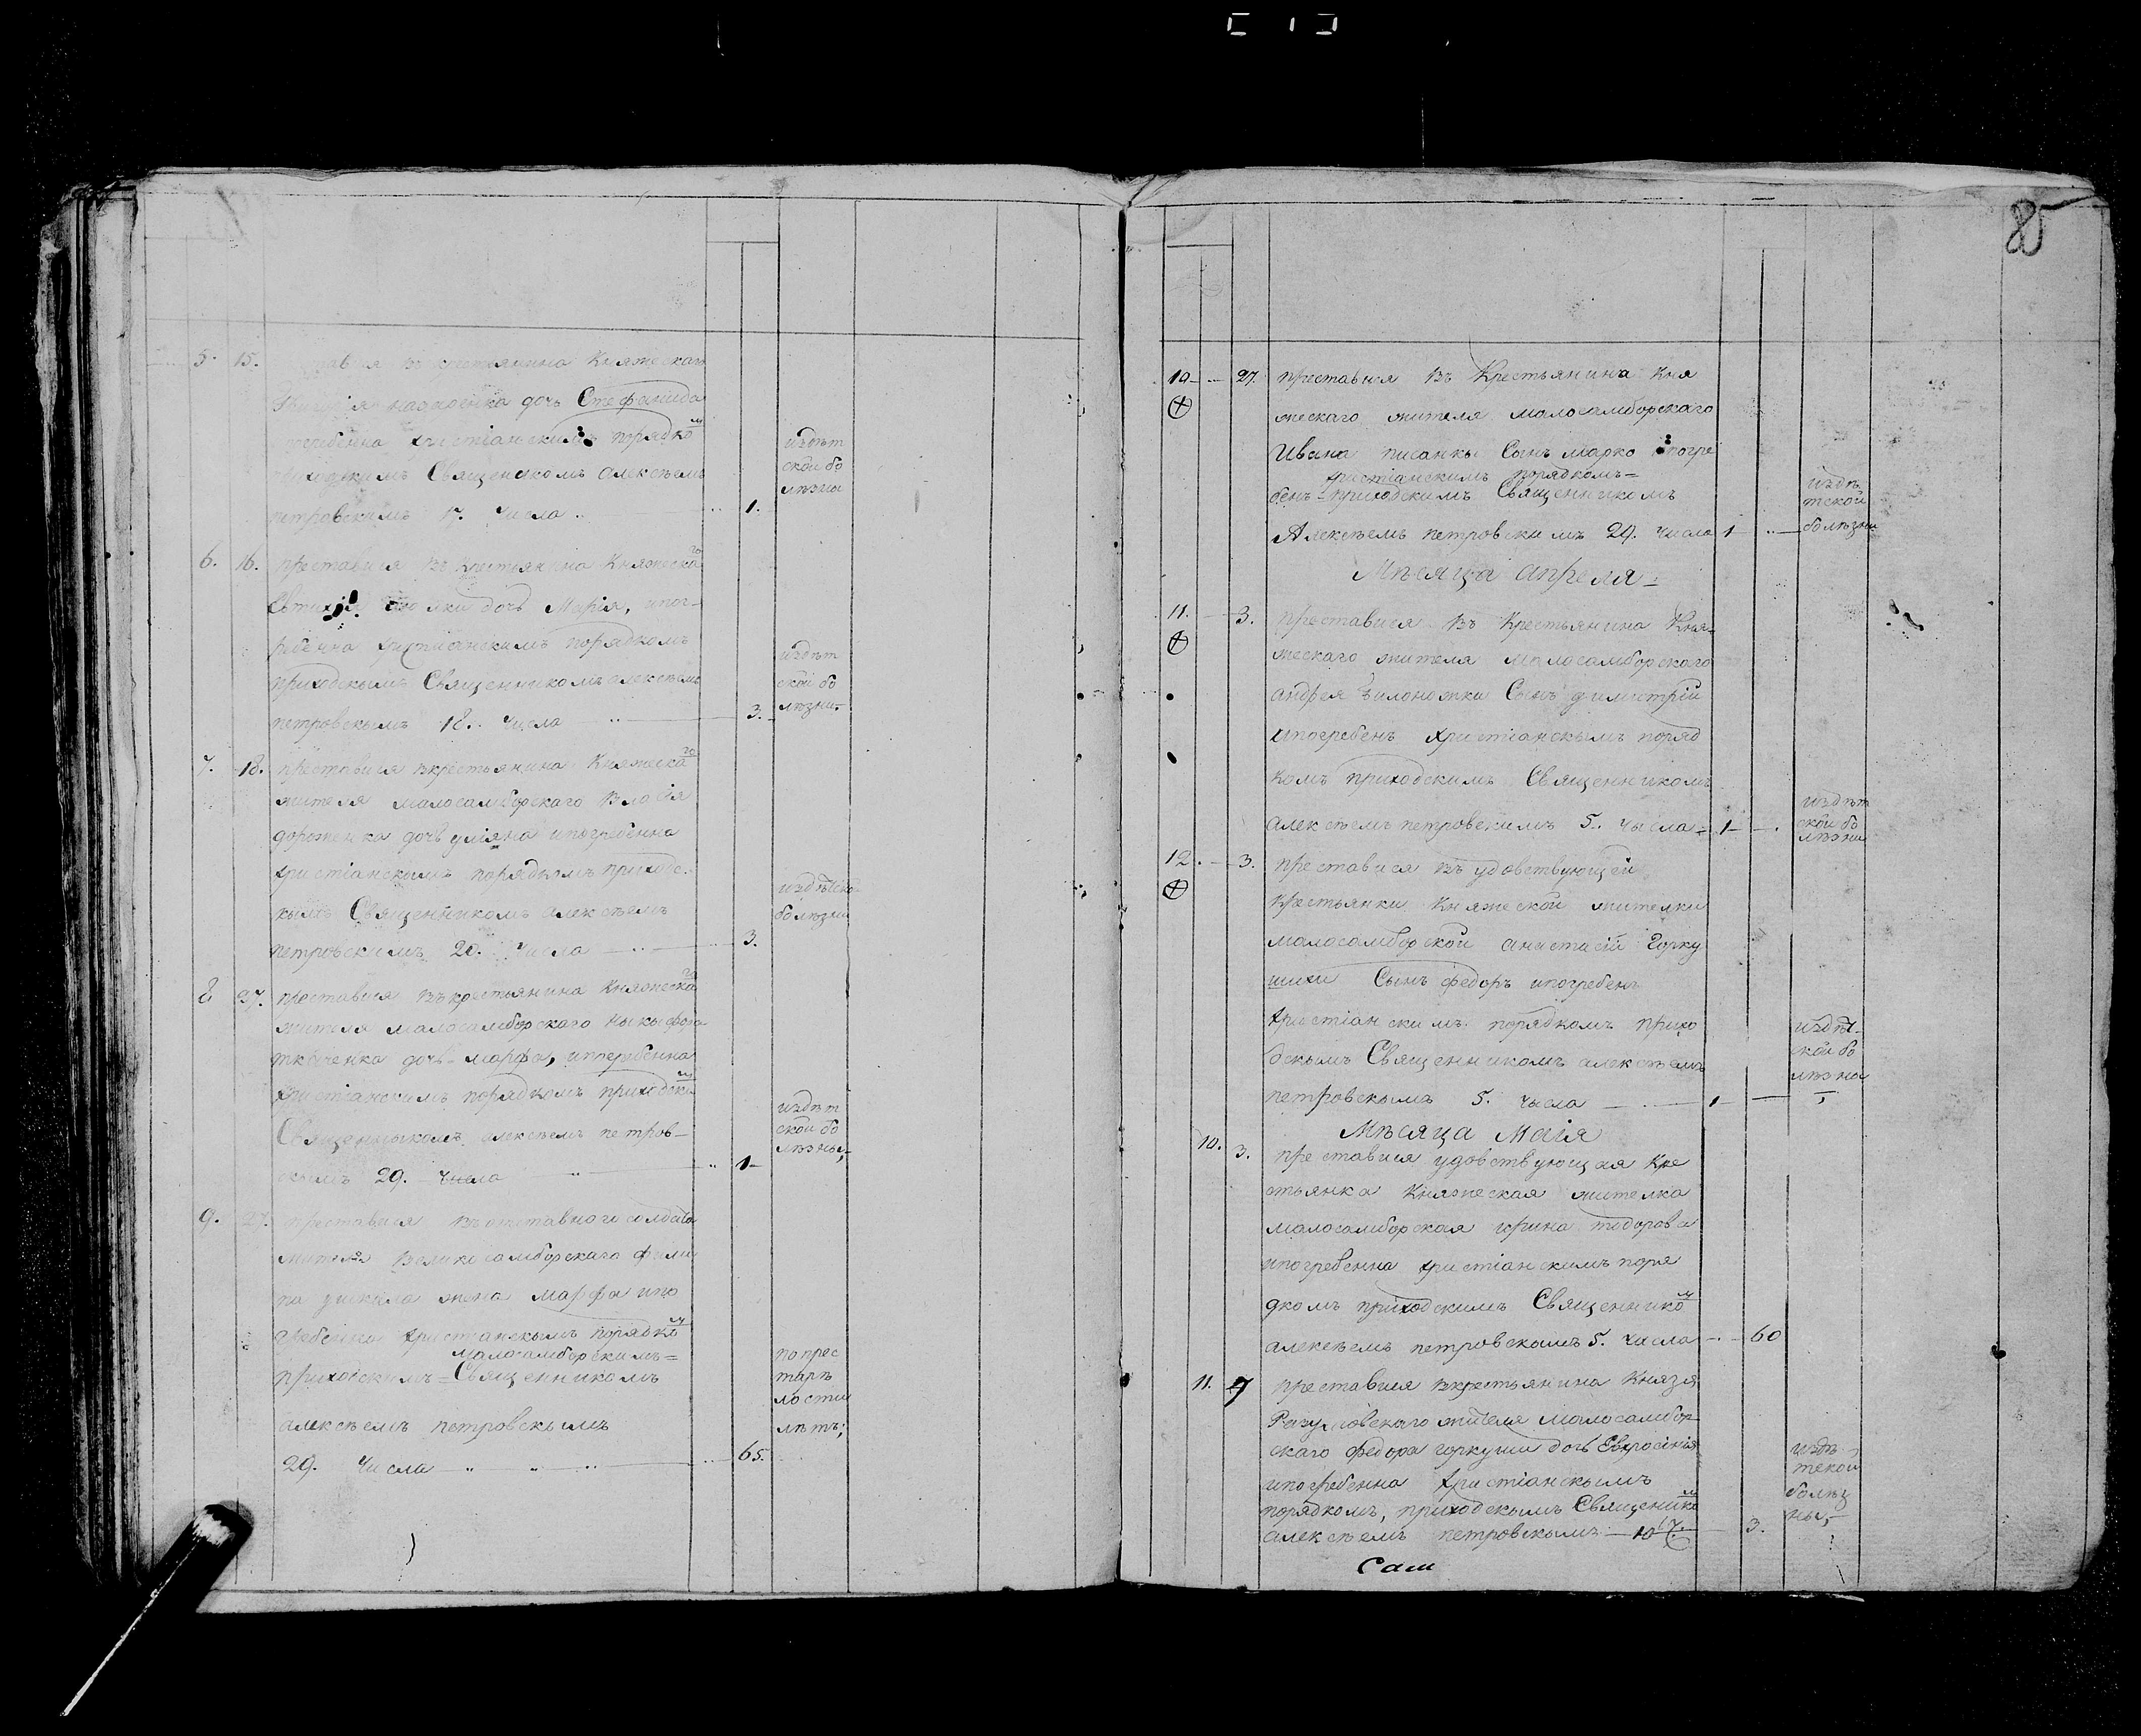 5. 15. въ крестьянина Княжескаго
назаренка дочь Стефанида
погребенна христіанскимъ порядком
приходскимъ Священикомъ алексѣемъ
петровскимъ 17. числа 1.
издѣт
ской бо
лѣзни
6. 16. преставися въ крестьянина Княжескаго
дочь Марія, ипог-
ребенна христианскимъ порядкомъ
приходскымъ Священникомъ алексѣемъ
петровскымъ 18. числа 3.
издѣт
ской бо
лѣзни.
7. 18. преставися вкрестьянина Княжескаго
жителя малосамборскаго власія
дорошенка дочь уліяна ипогребенна
христіанскимъ порядкомъ приходс-
кымъ Священникомъ алексѣемъ
петровскимъ 20. числа 3.
издѣтской
болѣзни
8 27. преставися въкрестьянина Княжескаго
жителя малосамборскаго ныкыфора
ткаченка дочь марфа, ипогребенна
христіанскимъ порядкомъ приходским
Священныкомъ алексѣемъ петров-
скымъ 29. числа 1-
издѣт
ской бо
лѣзны,-
9. 27. преставися въотставного солдата
жителя великосамборскаго фили
па жена марфа ипо
гребенна христианскымъ порядком
малосамборскимъ=
приходскимъ=Священникомъ
алексѣемъ петровскымъ
29. Числа 65.
по прес
тарѣ
лости
лѣтъ;
85
10 27. преставися въ Крестьянина Кня
жескаго жителя малосамборскаго
Ивана писанкы Сынъ марко ипогре
христіанскимъ порядкомъ=
бенъ=приходскимъ Священникомъ
Алексѣемъ петровскимъ 29. числа 1
издѣ
тской
болѣзни
Мѣсяца апреля=
11. 3. преставися въ Крестьянина Кня-
жескаго жителя малосамборскаго
андрея билоножки Сынъ димитрій
ипогребенъ христіанскымъ поряд
комъ приходскимъ Священникомъ
алексѣемъ петровскимъ 5. числа= 1-
издѣт
ской бо
лѣзни
12. 3. преставися въ удовствующей
крестьянки Княжеской жителки
малосамборской анастасій горку
шихи Сынъ федоръ ипогребенъ
христіанскимъ порядкомъ прихо
дскымъ Священникомъ алексѣемъ
петровскымъ 5. числа 1
издѣт-
ской бо
лѣзны
Мѣсяца Маія
10. 3. преставися удовствующая Кре
стьянка Княжеская жителка
малосамборская ирина тодорова
ипогребенна христіанскимъ поря
дкомъ приходскимъ Священником
алексѣемъ петровскимъ 5. числа 60
11. 9 преставися вкрестьянина Князя
Разумовскаго жителя малосамбор-
скаго федора горкуши дочь Евфросинія
ипогребенна христіанскымъ
порядкомъ, приходскымъ Священиком
алексѣемъ петровскымъ 3.
издѣ-
тской
болѣз
ны,-
Сам